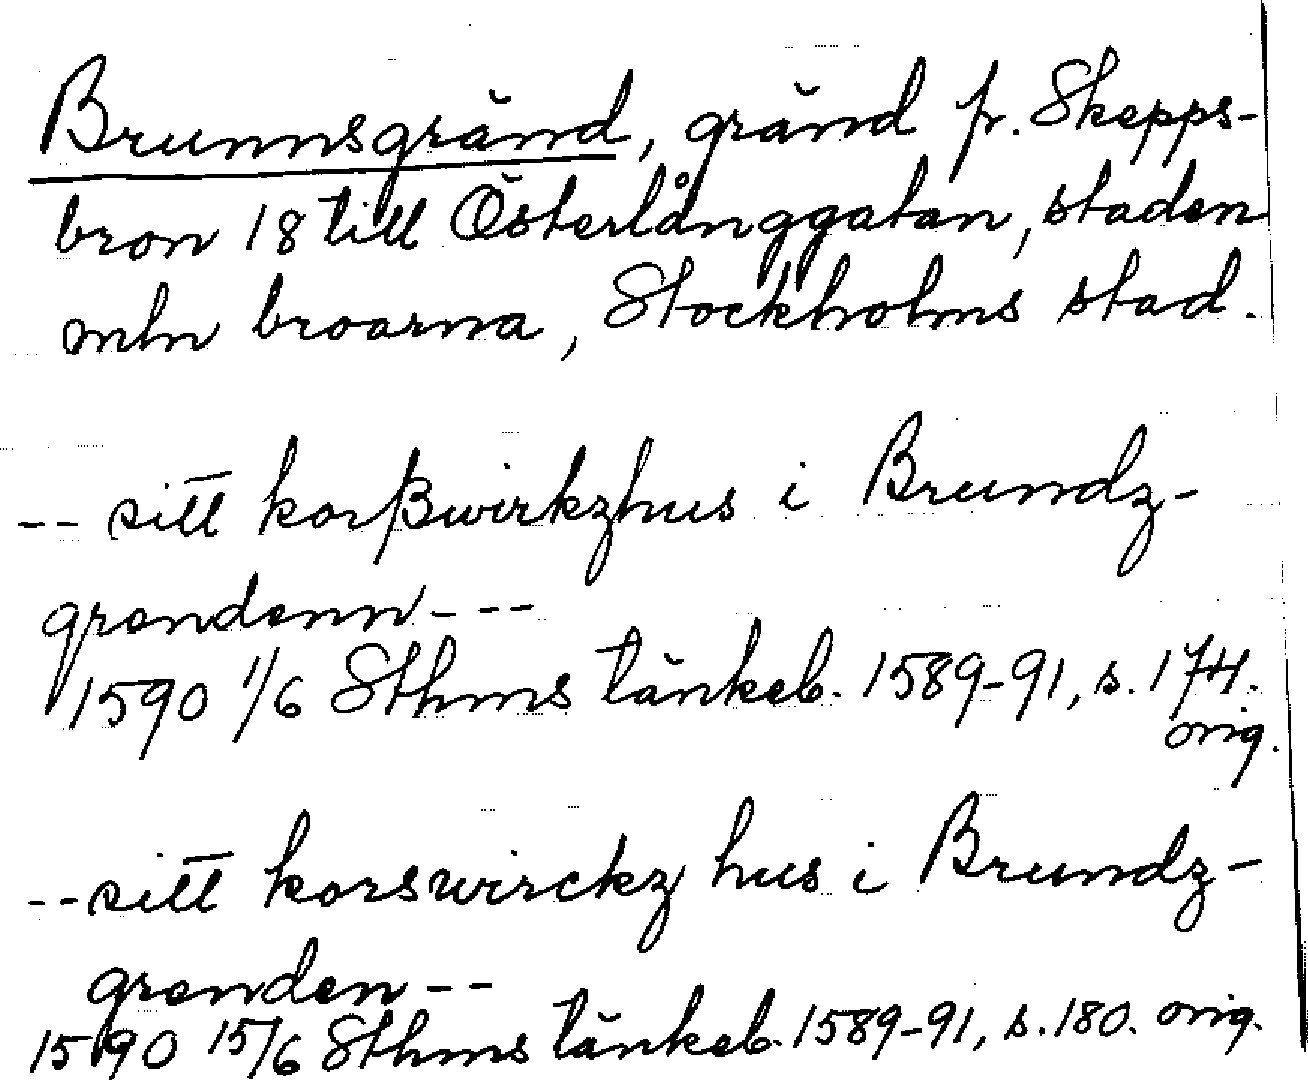 Brunnsgränd, gränd fr. Skepps-
bron 18 till Österlånggatan, staden
mln broarna, Stockholms stad.
-- sitt korßwirkzhus i Brundz-
grendenn ---
1590 1/6 Sthms tänkeb. 1589-91, s. 174.
orig.
-- sitt korswirckz hus i Brundz-
grenden --
1590 15/6 Sthms tänkeb. 1589-91, s. 180. orig.